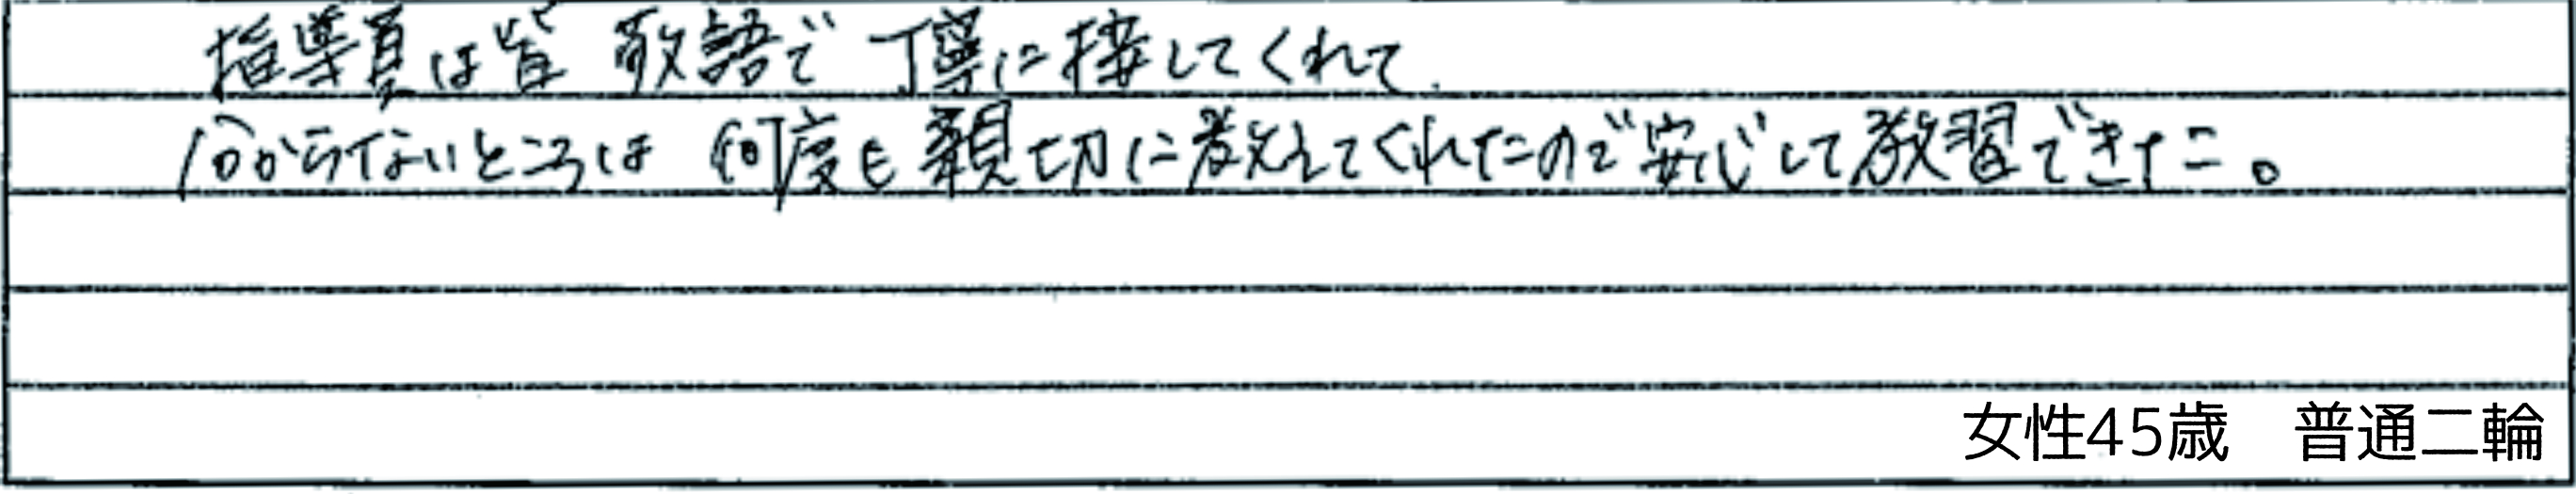 指導員は皆 敬語で 丁寧に接してくれて.
分からないところは 何度も親切に教えてくれたので安心して教習できた。
女性45歳　普通二輪